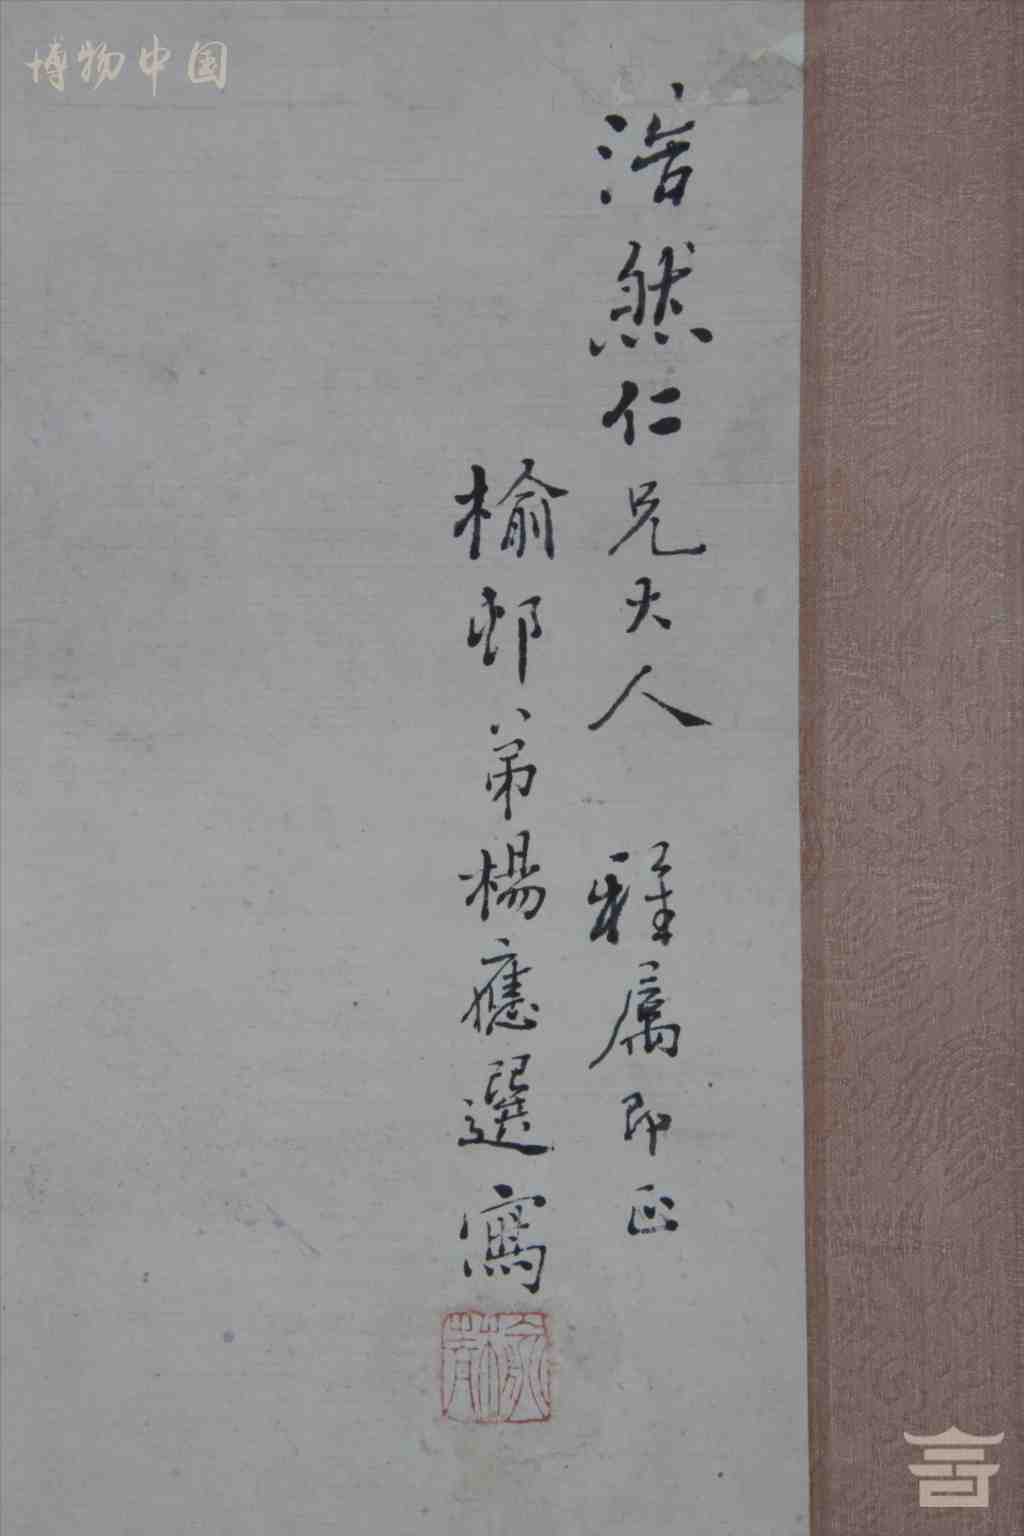 博物中国
浩然仁兄大人 雅属即正
榆邨弟楊應選寫